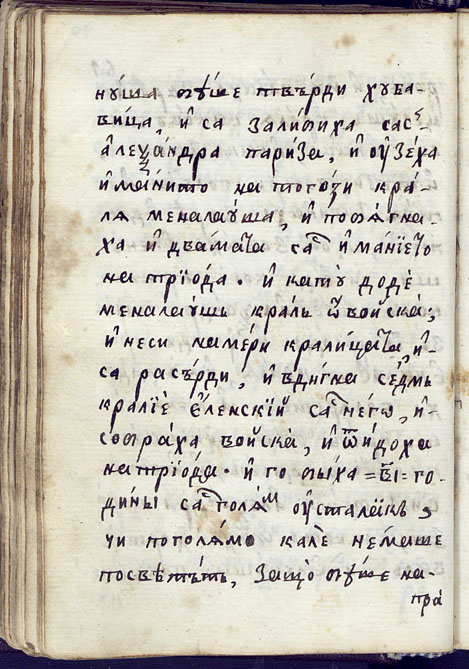 нꙋша бѣше твъ́рди хꙋба-
вица, и҆ са залиби́ха сас
а҆леѯа́ндра пари́за, и҆ ѹ҆зе́ха
и҆ма́нието на тогози кра-
лѧ менала́ꙋша, и҆ побѧ́гна-
ха и҆ два́мата са҆с и҆ма́нїето
на трїо́да. и҆ катꙋ̀ додѐ
менала́ꙋшь кра́ль ѿ во́йска,
и҆ не си наме́ри кралицата, и҆
са расъ́рди, и҆ вди́гна се́дмь
кра́лїе є҆ленскїй са҆с не́гѡ, и҆
собра́ха во́йска, и҆ ѿи́доха
на трїо́да. и҆ го би́ха =в҃і= го-
ди́ны са҆с голѧ́м ѹ҆сталѣкъ,
чи поголѧ́мо калѐ не́маше
по све́тътъ, защо̀ бѣше на-
пра́